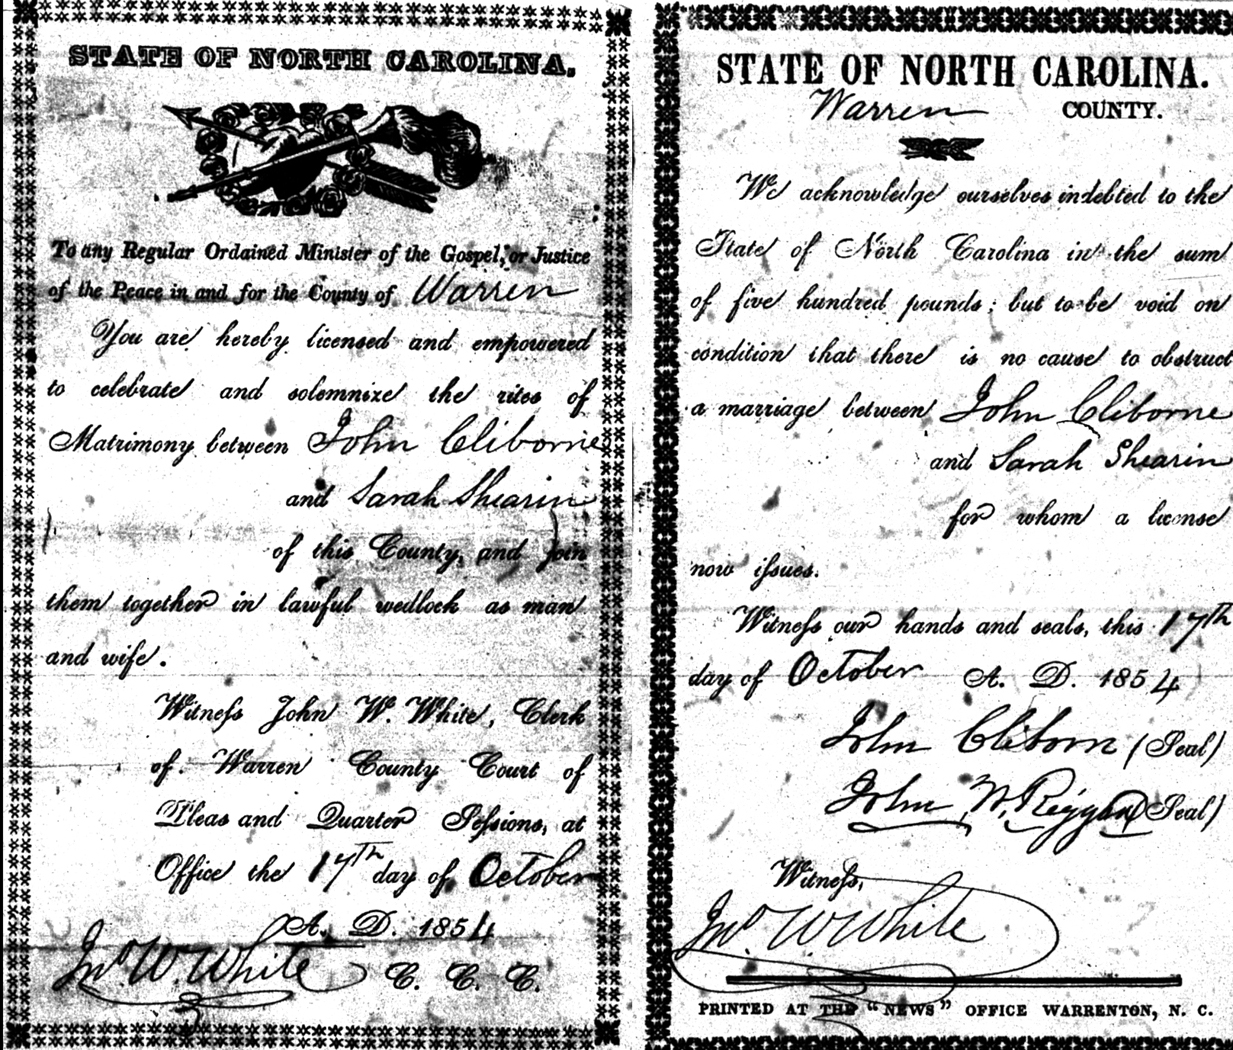 STATE OF NORTH CAROLINA.
To any Regular Ordained Minister of the Gospel, or Justice
of the Peace in and for the County of Warren
You are hereby licensed and empowered
to celebrate and solemnize the rites of
Matrimony between John Cliborne
and Sarah Shearin
of this County, and join
them together in lawful wedlock as man
and wife.
Witness John W. White, Clerk
of Warren County Court of
Pleas and Quarter Sessions, at
Office the 17th day of October
A. D. 1854
Jno W. White C. C. C.
STATE OF NORTH CAROLINA.
Warren COUNTY.
We acknowledge ourselves indebted to the
State of North Carolina in the sum
of five hundred pounds; but to be void on
condition that there is no cause to obstruct
a marriage between John Cliborne
and Sarah Shearin
for whom a license
now issues.
Witness our hands and seals, this 17th
day of October A. D. 1854
John Cliborn (Seal)
John W. Riggan (Seal)
Witness,
Jno W White
PRINTED AT THE "NEWS" OFFICE WARRENTON, N. C.